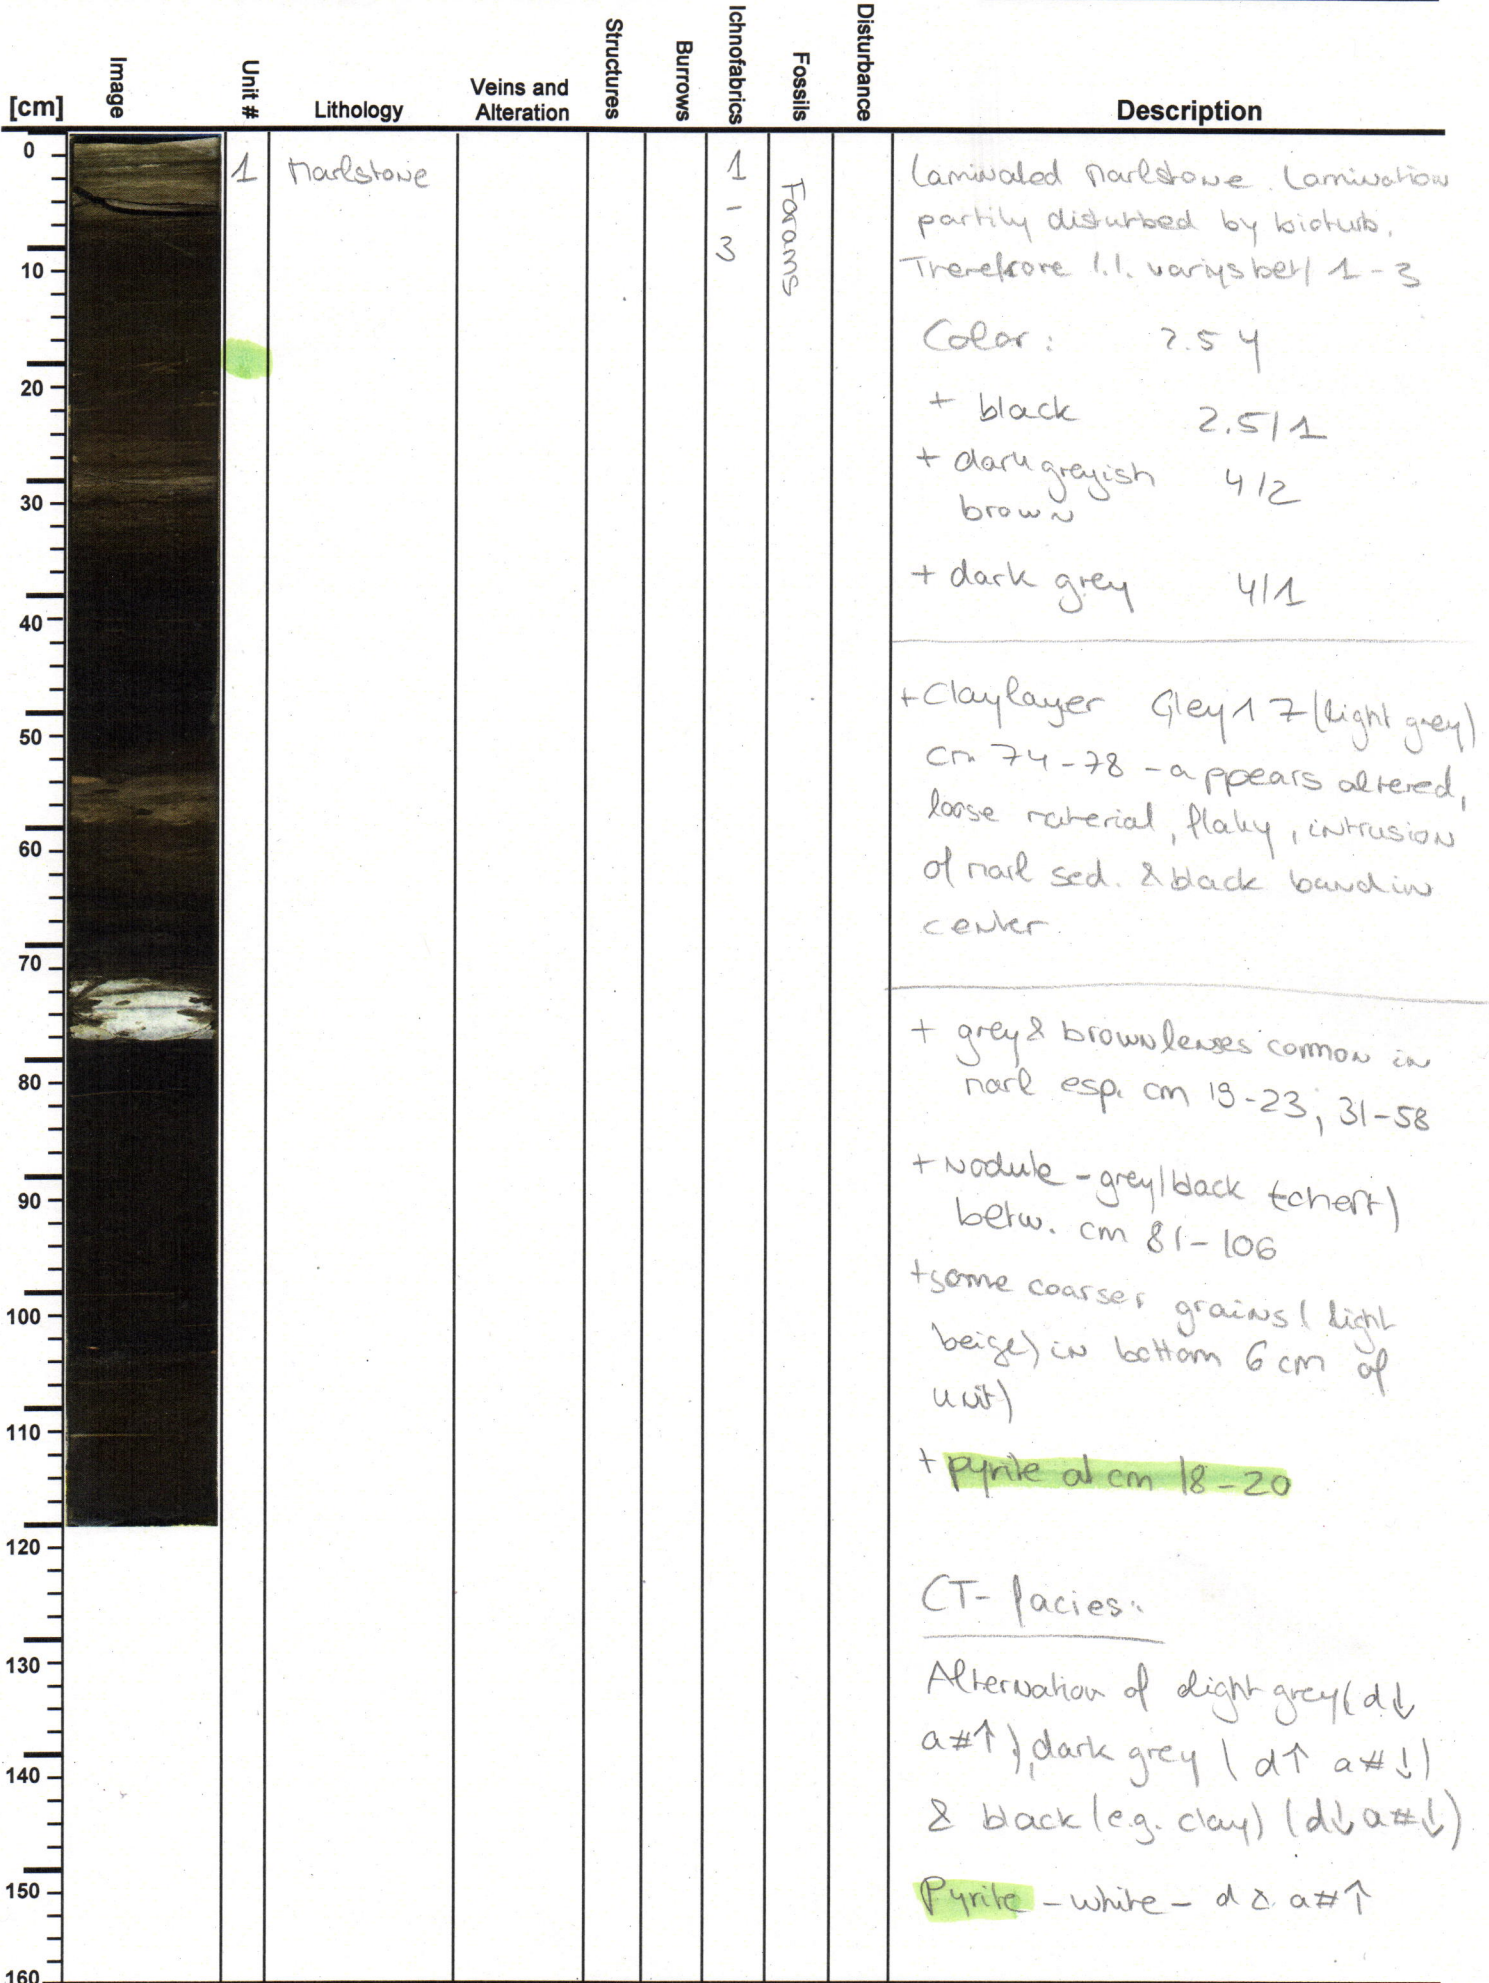 [cm]
Image
Unit #
Lithology
Veins and
Alteration
Structures
Burrows
Ichnofabrics
Fossils
Disturbance
Description
0
10
20
30
40
50
60
70
80
90
100
110
120
130
140
150
160
1
Marlstone
1
-
3
Forams
Laminated Marlstone. Lamination
partily disturbed by bioturb.
Therefrore I.I. variys bet/ 1-3
Color: 2.5 Y
+ black 2.5/1
+ dark greyish 4/2
brown
+ dark grey 4/1
+ Claylayer Gley 1 7 (light grey)
cm 74-78 - appears altered,
loose material, flaky, intrusion
of marl sed. & black band in
center.
+ grey & brown lenses common in
marl esp. cm 19-23; 31-58
+ Nodule - grey/black (chert)
betw. cm 81-106
+ some coarser grains (light
beige) in bottom 6 cm of
unit)
+ pyrite at cm 18-20
CT- facies:
Alternation of light grey (d↓
a#↑), dark grey (d↑ a#↓)
& black (e.g. clay) (d↓ a#↓)
Pyrite - white - d & a#↑